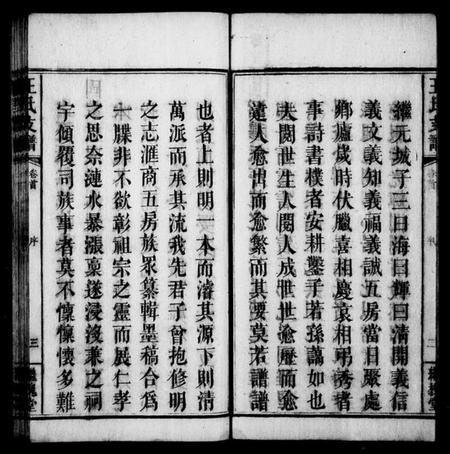 繼元城子三曰海曰輝曰清開義信
義文義知義福義誠五房當日聚處
鄉廬歲時伏臘喜相慶哀相弔秀者
事詩書樸者安耕鑿子若孫藹如也
夫閱世生人閱人成世世愈歷而愈
遠人愈出而愈繁而其要莫若譜譜
也者上則明一本而濬其源下則清
萬派而承其流我先君子曾抱修明
之志滙商五房族眾纂輯墨稿合為
一牒非不欲彰祖宗之靈而展仁孝
之思奈漣水暴漲稾遂浸沒兼之祠
宇傾覆司族事者莫不懍懍懷多難
王氏支譜
卷首
序
三
槐堂
王氏支譜
卷首
序
三
槐堂